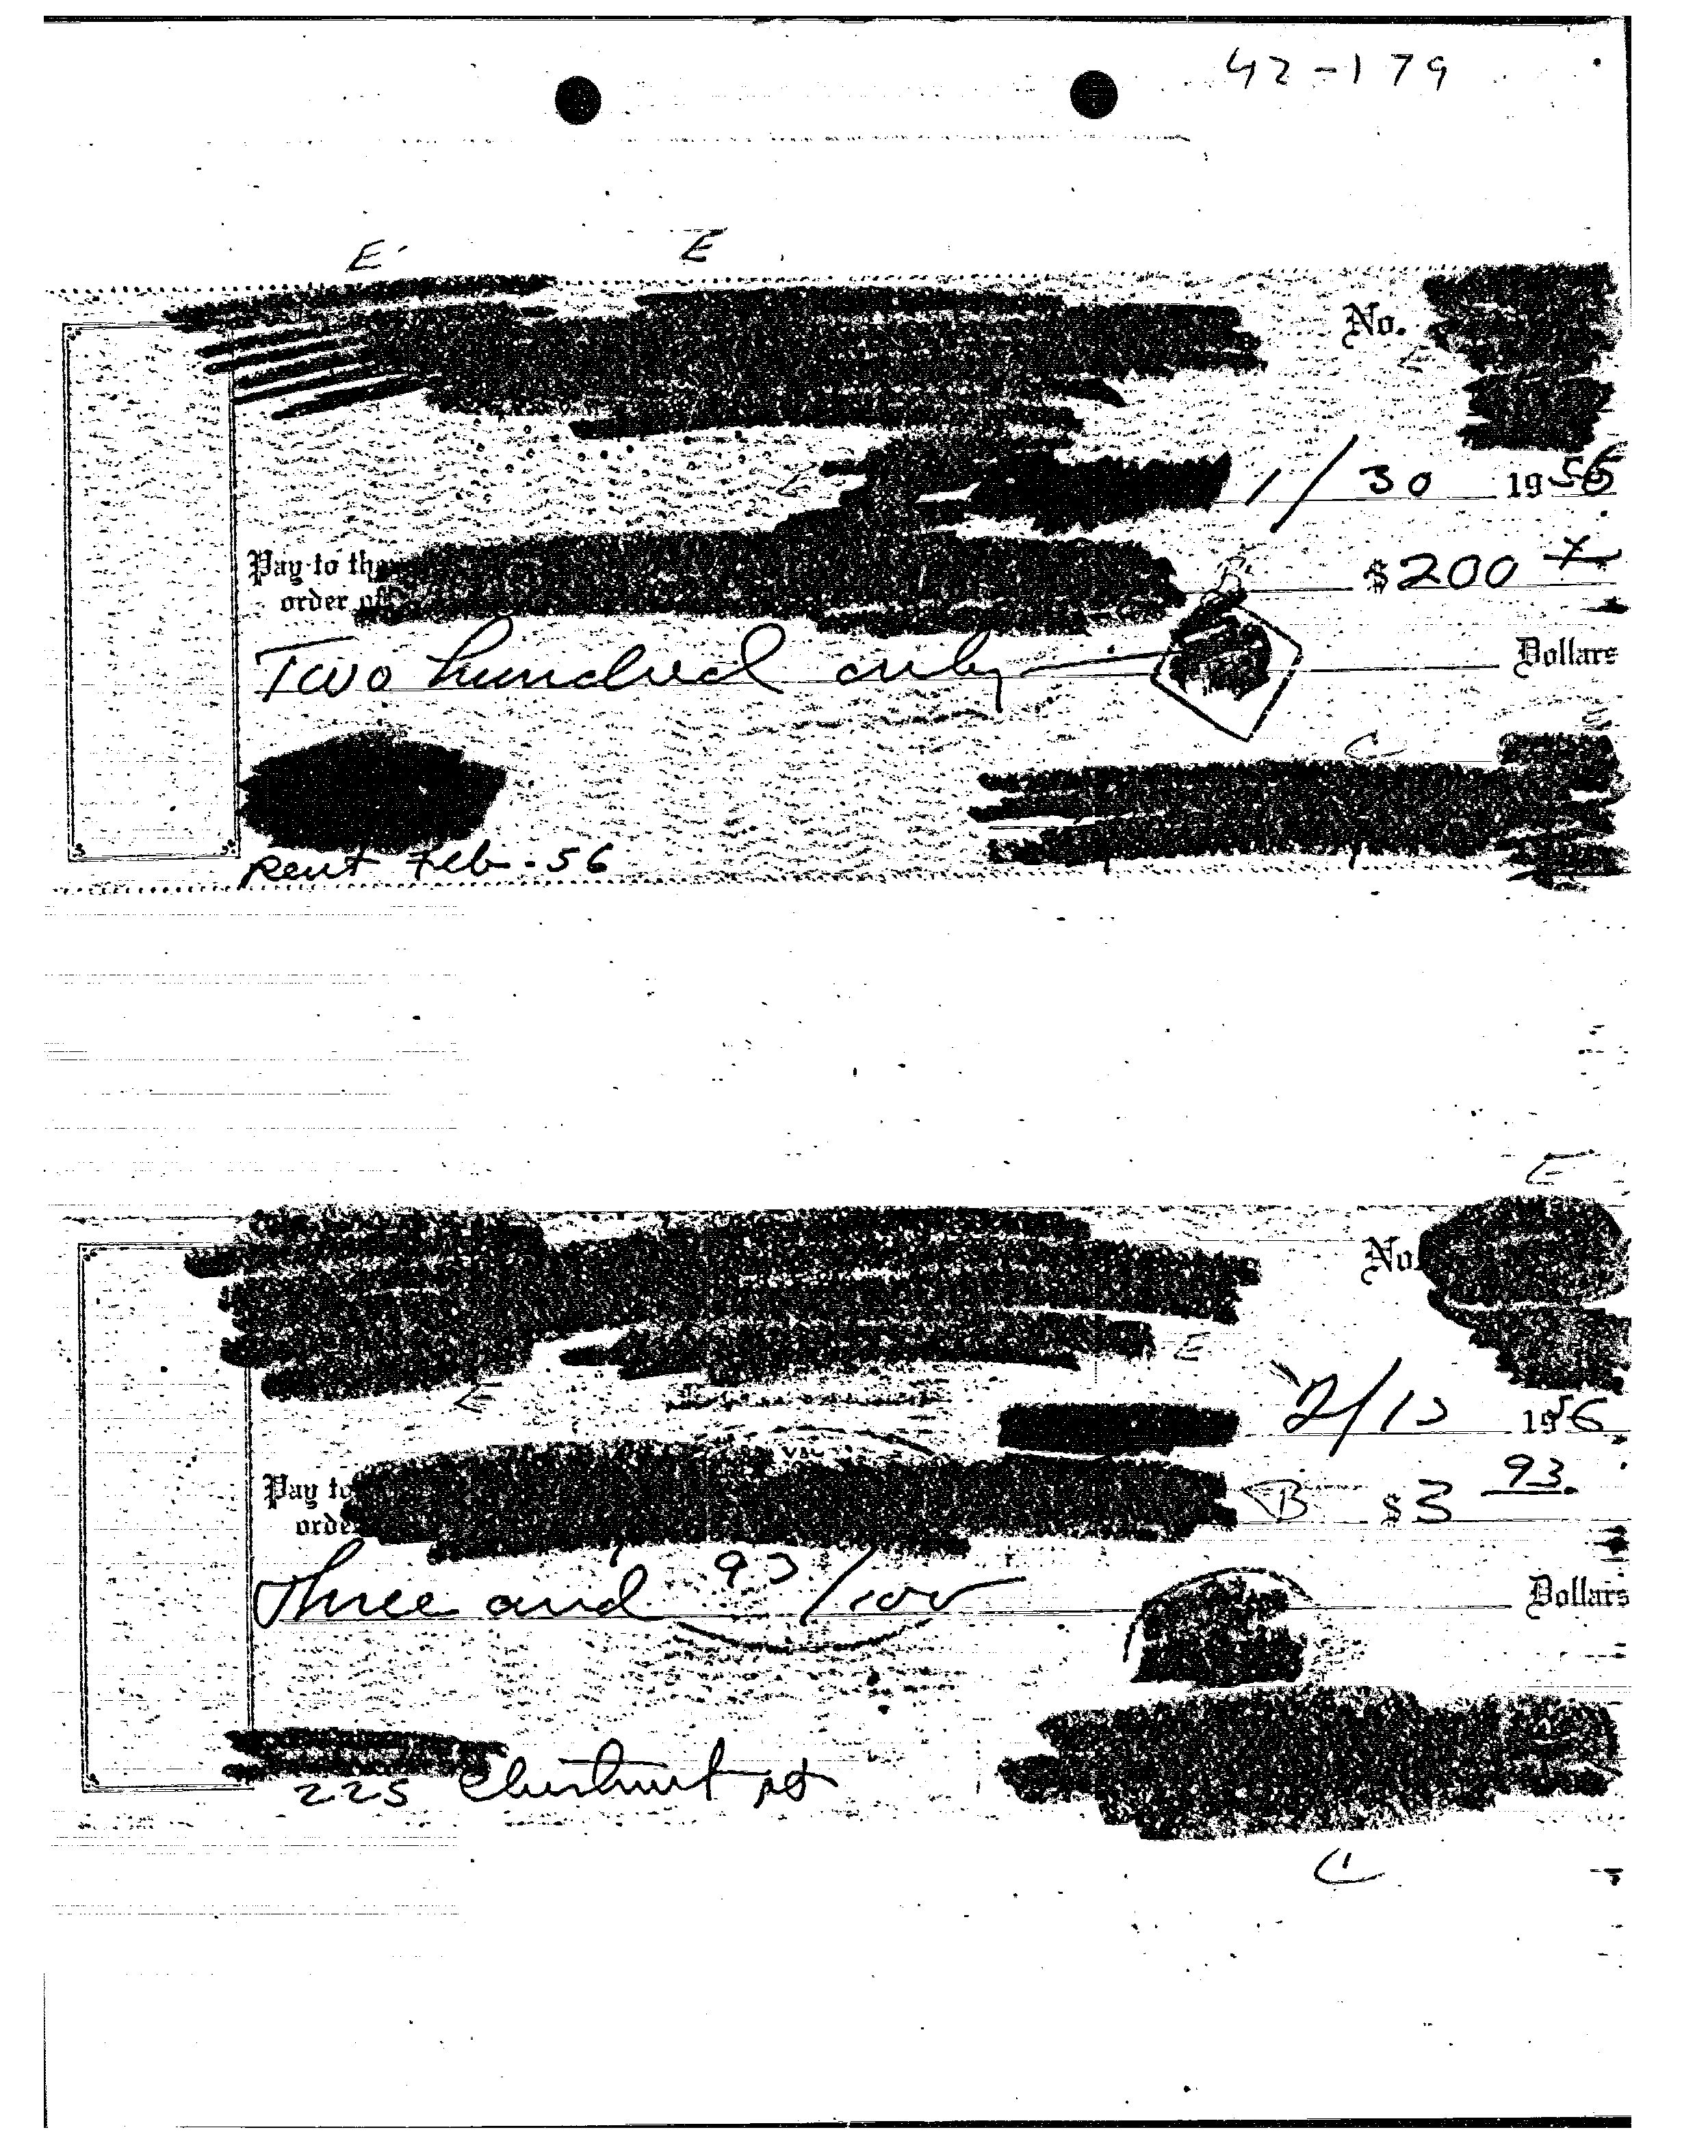 42-179
E E
No.
E
E 1/30 1956
Pay to the
order of B $200
Two hundred only Dollars
E
C
Rent Feb-56
E
No.
E
E
2/13 1956
Pay to B $3 93
orde
Three and 93/100 Dollars
225 Chestnut st
C